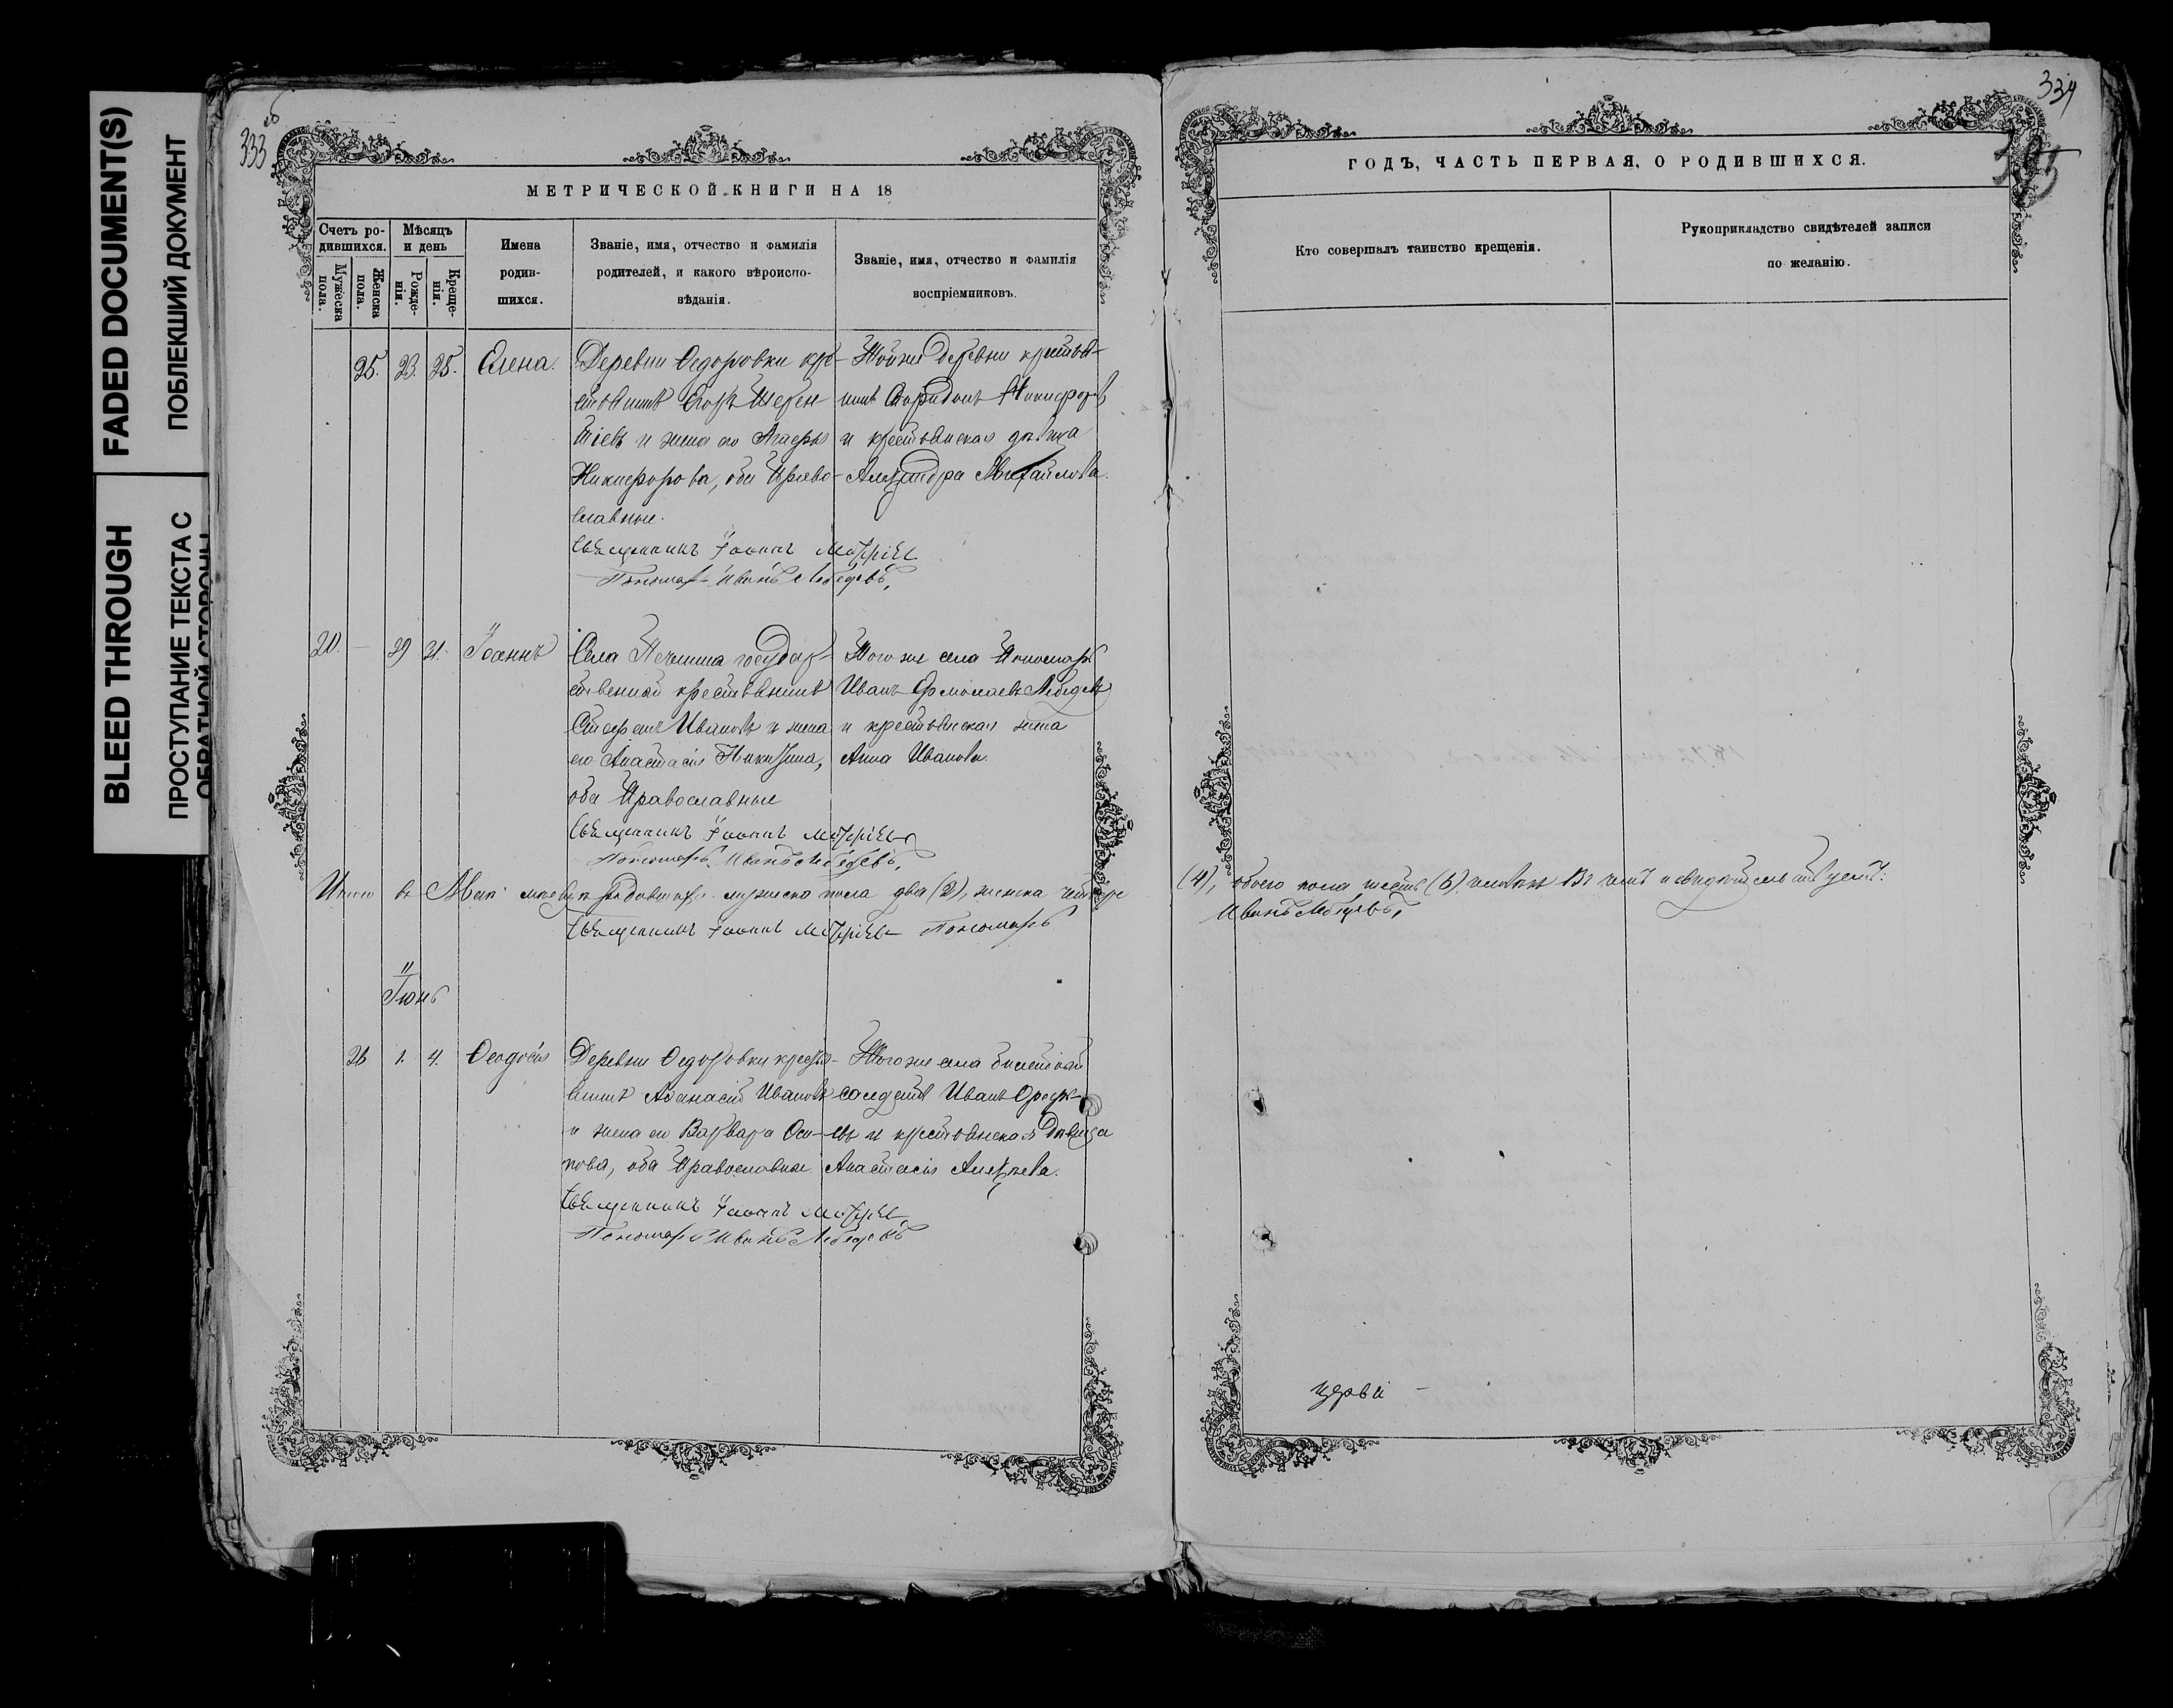 FADED DOCUMENT(S)
ПОБЛЕКШИЙ ДОКУМЕНТ
BLEED THROUGH
ПРОСТУПАНИЕ ТЕКСТА С
ОБРАТНОЙ СТОРОНЫ
333 об
МЕТРИЧЕСКОЙ КНИГИ НА 18
Счетъ ро-
дившихся.
Мужеска
пола.
Женска
пола.
Мѣсяцъ
и день
Рожде-
нія.
Креще-
нія.
Имена
родив-
шихся.
Званіе, имя, отчество и фамилія
родителей, и какого вѣроиспо-
вѣданія.
Званіе, имя, отчество и фамилія
воспріемниковъ.
25. 23. 25. Елена.
Деревни Ѳедоровки кре-
стьянинъ Егоръ
и жена его
Никифорова, оба Право-
славные.
Тойже деревни крестья-
нинъ Спиридонъ Никифоровъ
и крестьянская дѣвица
Александра Михайлова.
Священникъ Іоаннъ
Пономарь Иванъ Лебедевъ,
20. — 29 31. Іоаннъ
Села государ-
ственный крестьянинъ
Стефанъ Ивановъ и жена
его Анастасія Никитина,
оба Православные
Того же села Пономарь
Иванъ Ермолаевъ Лебедевъ
и крестьянская жена
Анна Иванова.
Священникъ Іоаннъ
Пономарь Иванъ Лебедевъ,
Итого въ Маѣ мѣсяцѣ родившихся мужеска пола два (2), женска четыре
(4), обоего пола шесть (6) человѣкъ Въ чемъ и свидѣтельствуемъ:
Священникъ Іоаннъ Пономарь
Иванъ Лебедевъ,
Іюнь
26 1. 4. Ѳеодосія
Деревни Ѳедоровки кресть-
янинъ Аѳанасій Ивановъ
и жена его Варвара Оси-
пова, оба Православные.
Того же села билетный
солдатъ Иванъ
и крестьянская дѣвица
Анастасія Алексѣева.
Священникъ Іоаннъ
Пономарь Иванъ Лебедевъ
334
ГОДЪ, ЧАСТЬ ПЕРВАЯ, О РОДИВШИХСЯ.
Кто совершалъ таинство крещенія.
Рукоприкладство свидѣтелей записи
по желанію.